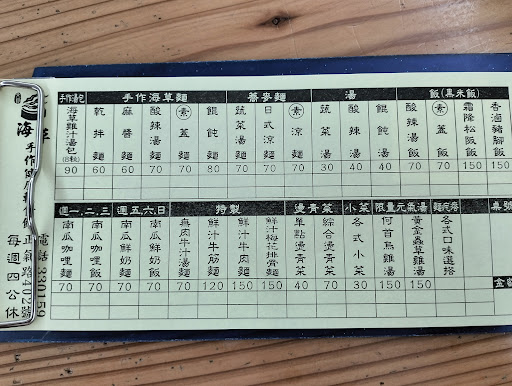 手作湯包 手作海草麵 蕎麥麵 湯 飯(黑米飯)
海草雞汁湯包(8粒) 90
乾拌麵 60
麻醬麵 60
酸辣湯麵 70
素蓋麵 70
餛飩麵 80
蔬菜湯麵 70
日式涼麵 70
素涼麵 70
蔬菜湯 30
酸辣湯 40
餛飩湯 40
酸辣湯飯 70
素蓋飯 70
霜降松阪飯 150
香滷豬腳飯 150
週一.二.三 週五.六.日 特製 燙青菜 小菜 限量元氣湯 麵疙瘩 桌號
南瓜咖哩麵 70
南瓜咖哩飯 70
南瓜鮮奶麵 70
南瓜鮮奶飯 70
無肉牛汁湯麵 70
鮮汁牛筋麵 120
鮮汁牛肉麵 150
鮮汁梅花排骨麵 150
單點燙青菜 40
綜合燙青菜 70
各式小菜 30
何首烏雞湯 150
黃金蟲草雞湯 150
各式口味選搭
海
手作
正氣路402號
電話 330159
每週四公休